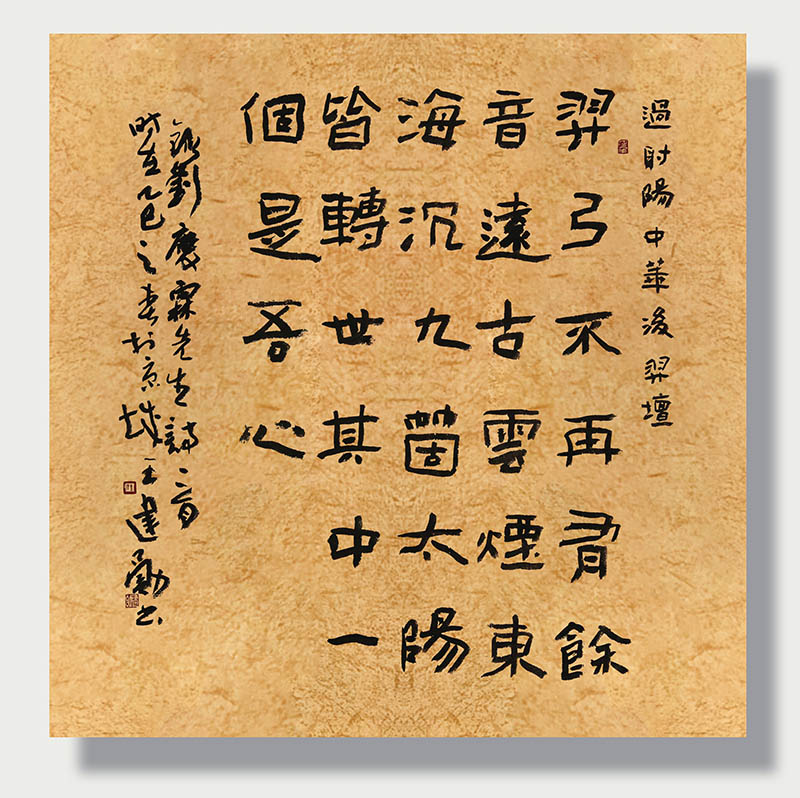 過射陽中華後羿壇
羿弓不再有餘
音遠古雲煙東
海沉九箇太陽
皆轉世其中一
個是吾心
錄劉慶霖先生詩二首
時在乙巳之春於京城王建勳書